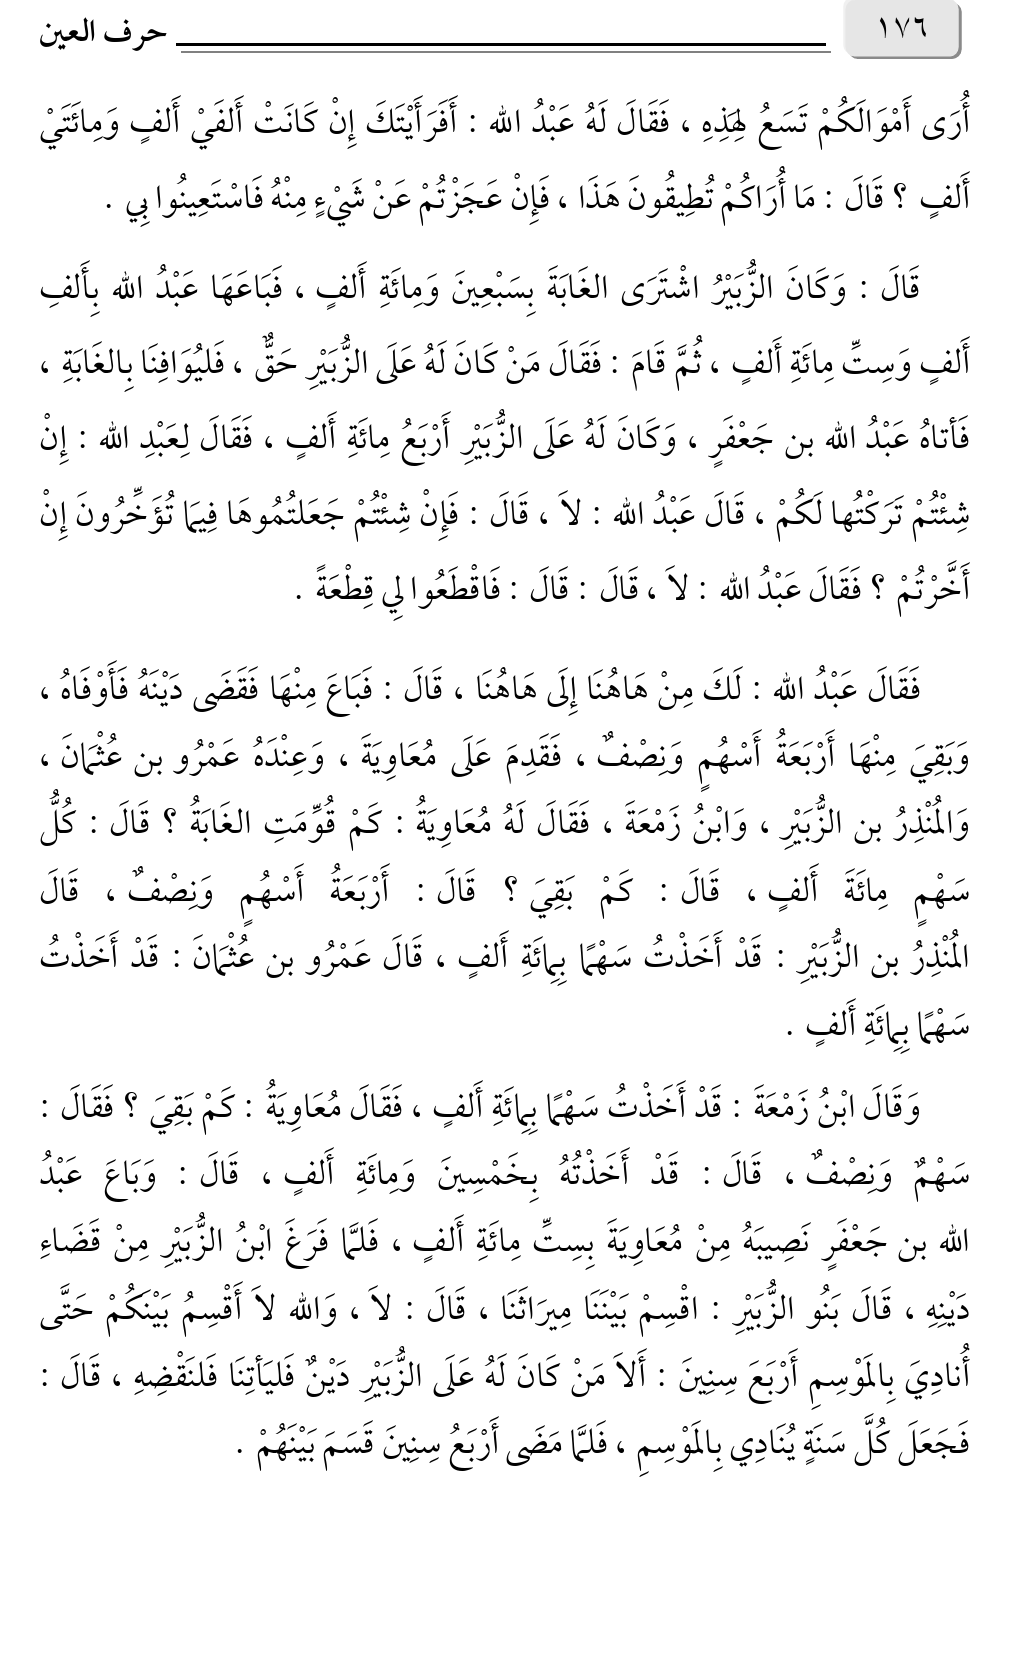 ١٧٦
حرف العين
أُرَى أَمْوَالَكُمْ تَسَعُ لِهَذِهِ ، فَقَالَ لَهُ عَبْدُ الله : أَفَرَأَيْتَكَ إِنْ كَانَتْ أَلفَيْ أَلفٍ وَمِائَتَيْ
أَلفٍ ؟ قَالَ : مَا أُرَاكُمْ تُطِيقُونَ هَذَا ، فَإِنْ عَجَزْتُمْ عَنْ شَيْءٍ مِنْهُ فَاسْتَعِينُوا بِي .
قَالَ : وَكَانَ الزُّبَيْرُ اشْتَرَى الغَابَةَ بِسَبْعِينَ وَمِائَةِ أَلفٍ ، فَبَاعَهَا عَبْدُ الله بِأَلفِ
أَلفٍ وَسِتِّ مِائَةِ أَلفٍ ، ثُمَّ قَامَ : فَقَالَ مَنْ كَانَ لَهُ عَلَى الزُّبَيْرِ حَقٌّ ، فَليُوَافِنَا بِالغَابَةِ ،
فَأتاهُ عَبْدُ الله بن جَعْفَرٍ ، وَكَانَ لَهُ عَلَى الزُّبَيْرِ أَرْبَعُ مِائَةِ أَلفٍ ، فَقَالَ لِعَبْدِ الله : إِنْ
شِئْتُمْ تَرَكْتُها لَكُمْ ، قَالَ عَبْدُ الله : لاَ ، قَالَ : فَإِنْ شِئْتُمْ جَعَلتُمُوهَا فِيمَا تُؤَخِّرُونَ إِنْ
أَخَّرْتُمْ ؟ فَقَالَ عَبْدُ الله : لاَ ، قَالَ : قَالَ : فَاقْطَعُوا لِي قِطْعَةً .
فَقَالَ عَبْدُ الله : لَكَ مِنْ هَاهُنَا إِلَى هَاهُنَا ، قَالَ : فَبَاعَ مِنْهَا فَقَضَى دَيْنَهُ فَأَوْفَاهُ ،
وَبَقِيَ مِنْهَا أَرْبَعَةُ أَسْهُمٍ وَنِصْفٌ ، فَقَدِمَ عَلَى مُعَاوِيَةَ ، وَعِنْدَهُ عَمْرُو بن عُثْمَانَ ،
وَالمُنْذِرُ بن الزُّبَيْرِ ، وَابْنُ زَمْعَةَ ، فَقَالَ لَهُ مُعَاوِيَةُ : كَمْ قُوِّمَتِ الغَابَةُ ؟ قَالَ : كُلُّ
سَهْمٍ مِائَةَ أَلفٍ ، قَالَ : كَمْ بَقِيَ ؟ قَالَ : أَرْبَعَةُ أَسْهُمٍ وَنِصْفٌ ، قَالَ
المُنْذِرُ بن الزُّبَيْرِ : قَدْ أَخَذْتُ سَهْمًا بِمِائَةِ أَلفٍ ، قَالَ عَمْرُو بن عُثْمَانَ : قَدْ أَخَذْتُ
سَهْمًا بِمِائَةِ أَلفٍ .
وَقَالَ ابْنُ زَمْعَةَ : قَدْ أَخَذْتُ سَهْمًا بِمِائَةِ أَلفٍ ، فَقَالَ مُعَاوِيَةُ : كَمْ بَقِيَ ؟ فَقَالَ :
سَهْمٌ وَنِصْفٌ ، قَالَ : قَدْ أَخَذْتُهُ بِخَمْسِينَ وَمِائَةِ أَلفٍ ، قَالَ : وَبَاعَ عَبْدُ
الله بن جَعْفَرٍ نَصِيبَهُ مِنْ مُعَاوِيَةَ بِسِتِّ مِائَةِ أَلفٍ ، فَلمَّا فَرَغَ ابْنُ الزُّبَيْرِ مِنْ قَضَاءِ
دَيْنِهِ ، قَالَ بَنُو الزُّبَيْرِ : اقْسِمْ بَيْنَنَا مِيرَاثَنَا ، قَالَ : لاَ ، وَالله لاَ أَقْسِمُ بَيْنَكُمْ حَتَّى
أُنادِيَ بِالمَوْسِمِ أَرْبَعَ سِنِينَ : أَلاَ مَنْ كَانَ لَهُ عَلَى الزُّبَيْرِ دَيْنٌ فَليَأتِنَا فَلنَقْضِهِ ، قَالَ :
فَجَعَلَ كُلَّ سَنَةٍ يُنَادِي بِالمَوْسِمِ ، فَلمَّا مَضَى أَرْبَعُ سِنِينَ قَسَمَ بَيْنَهُمْ .